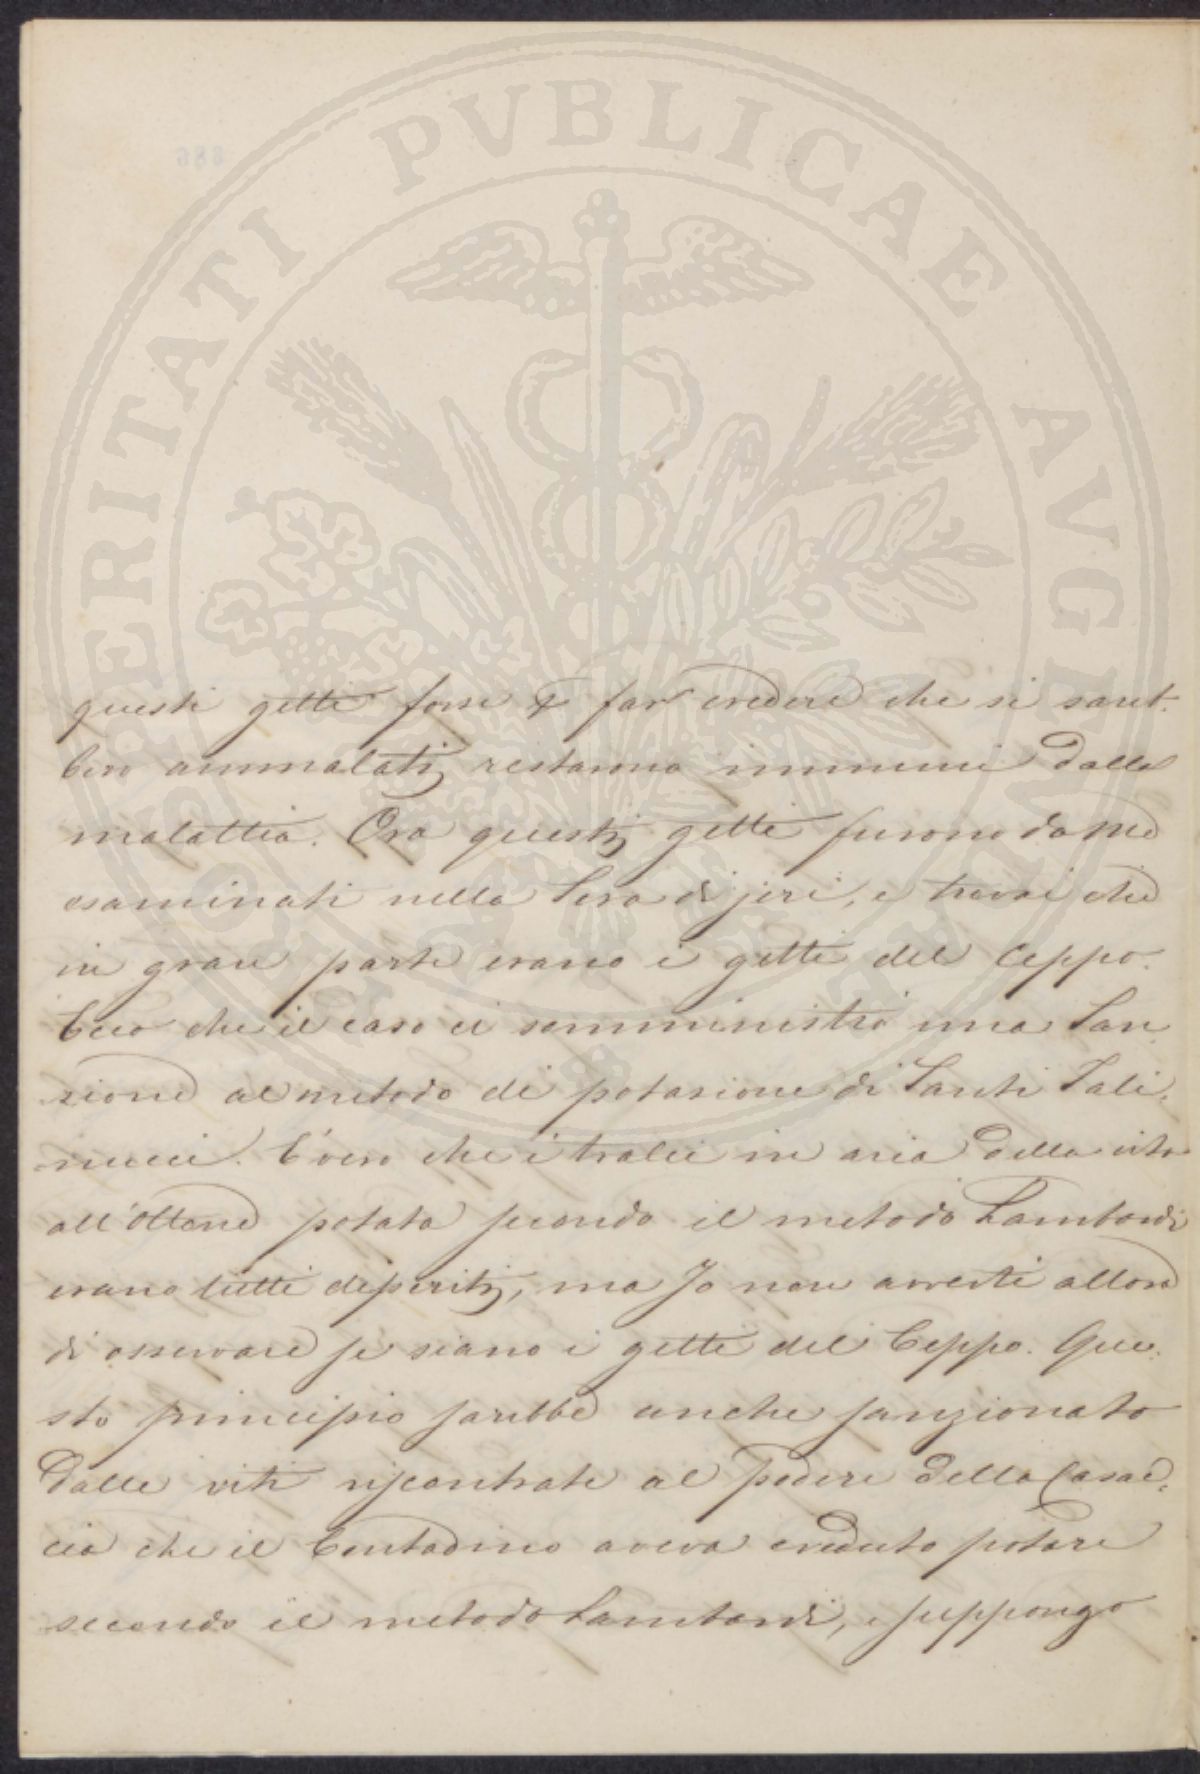 PROSPERITATI PVBLICAE AVGENDAE
questi getti forse p far credere che si sareb-
bero ammalati, restarono immuni dalla
malattia. Ora questi getti furono da me
esaminati nella Sera di jeri, e trovai che
in gran parte erano i getti del Ceppo.
Ecco che il caso ci somministrò una San-
zione al metodo di potazione di Santi Sali-
nucci. È vero che i tralci in aria della vite
all'Ottone potata secondo il metodo Lambardi
erano tutti deperiti, ma Jo non avvertì allora
di osservare se siano i getti del Ceppo. Que-
sto principio sarebbe anche sanzionato
Dalle viti riscontrate al podere della Casac-
cia che il Contadino aveva creduto potare
secondo il metodo Lambardi, e suppongo